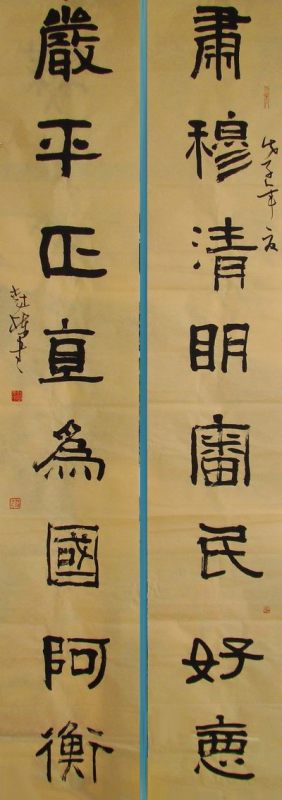 肅穆清明審民好惡
戊子年夏
嚴平正直為國阿衡